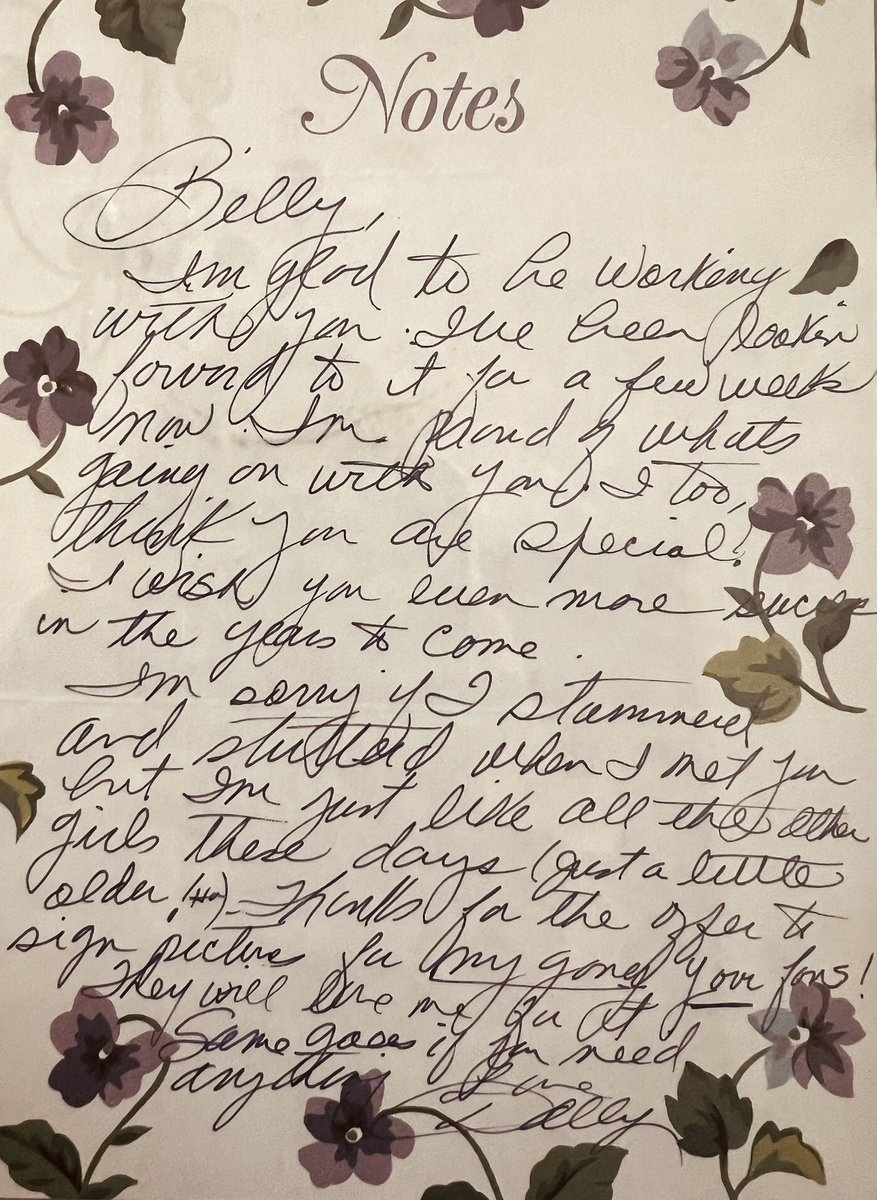 Notes
Billy,
I'm glad to be working
with you. I've been lookin
forward to it for a few weeks
now. I'm proud of whats
going on with you. I too,
think you are special!
I wish you even more success
in the years to come.
I'm sorry if I stammered
and stuttered when I met you
but I'm just like all the other
girls these days (just a little
older (Ha). Thanks for the offer to
sign pictures for my gang your fans!
They will love me for it
Same goes if you need
anything Love
Dolly